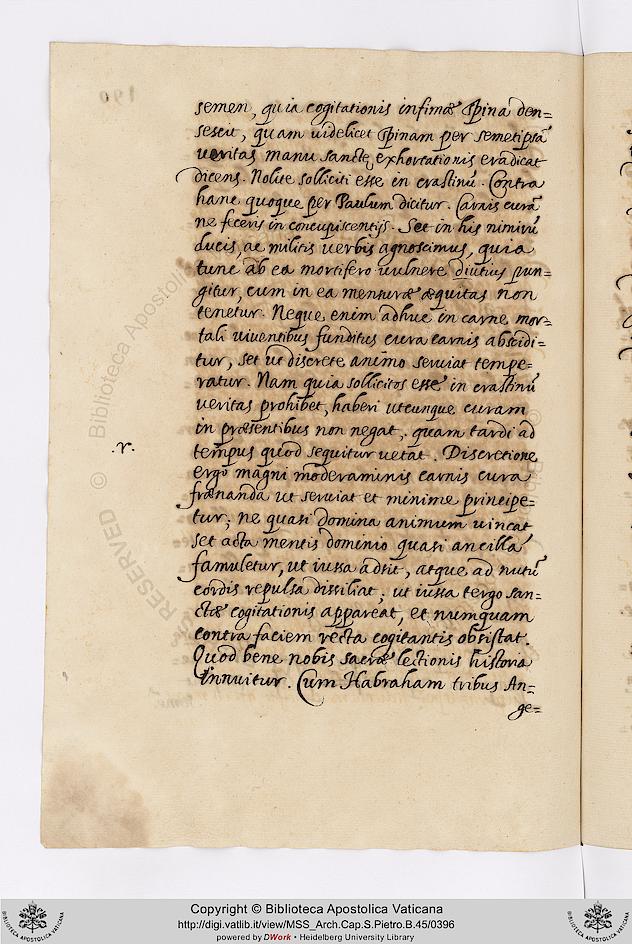 semen, quia cogitationis infimæ spina den=
sescit, quam uidelicet spinam per semetipsā
ueritas manu sanctę exhortationis eradicat
dicens. Nolite solliciti esse in crastinū. Contra
hanc quoque per Paulum dicitur. Carnis curā
ne feceris in concupiscentijs. Set in his nimirū
ducis, ac militis uerbis agnoscimus, quia
tunc ab ea mortifero uulnere diutius pun=
gitur, cum in ea mensuræ æquitas non
tenetur. Neque enim adhuc in carne mor=
tali uiuentibus funditus cura carnis abscidi=
tur, set ut discrete animo seruiat tempe=
ratur. Nam quia sollicitos esse in crastinū
ueritas prohibet, haberi utcunque curam
in præsentibus non negat, quam tardi ad
.v.
tempus quod sequitur uetat. Discretione
ergo magni moderaminis carnis cura
frænanda ut seruiat et minime principe=
tur; ne quasi domina animum uincat
set acta mentis dominio quasi ancilla
famuletur, ut iussa adsit, atque ad nutū
cordis repulsa dissiliat; ut iussa tergo san=
ctæ cogitationis appareat, et numquam
contra faciem recta cogitantis obsistat.
Quod bene nobis sacræ lectionis historia
innuitur. Cum Habraham tribus An=
ge=
RESERVED © Biblioteca Apostolica
Copyright © Biblioteca Apostolica Vaticana
http://digi.vatlib.it/view/MSS_Arch.Cap.S.Pietro.B.45/0396
powered by DWork • Heidelberg University Library